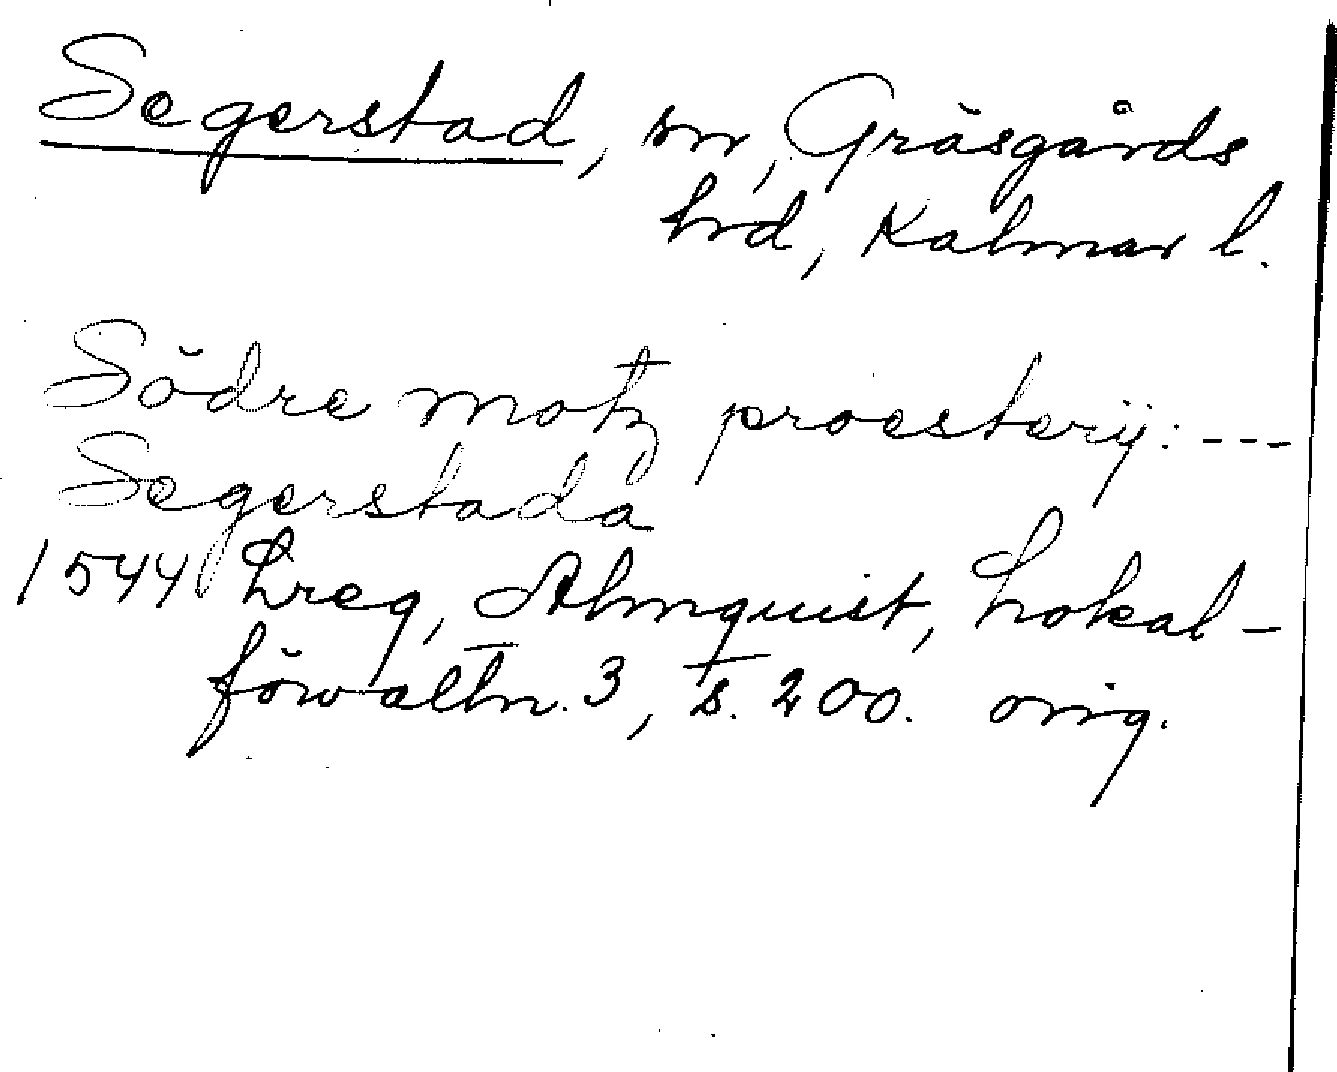 Segerstad, sn, Gräsgårds
hrd, Kalmar l.
Södre motz proesterij: ---
Segerstada
1544 Lreg, Almquist, Lokal-
förvaltn. 3, s. 200. orig.